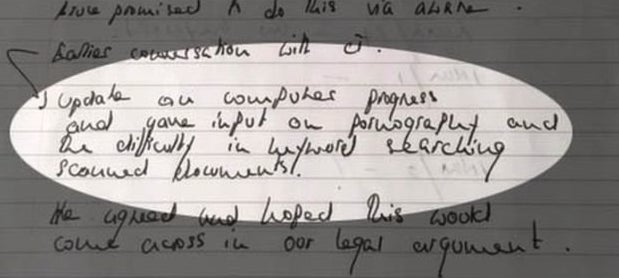 have promised to do this via airline.
Earlier conversation with J.
Update on computer progress
and gave input on pornography and
the difficulty in keyword searching
scanned documents.
He agreed and hoped this would
come across in our legal argument.